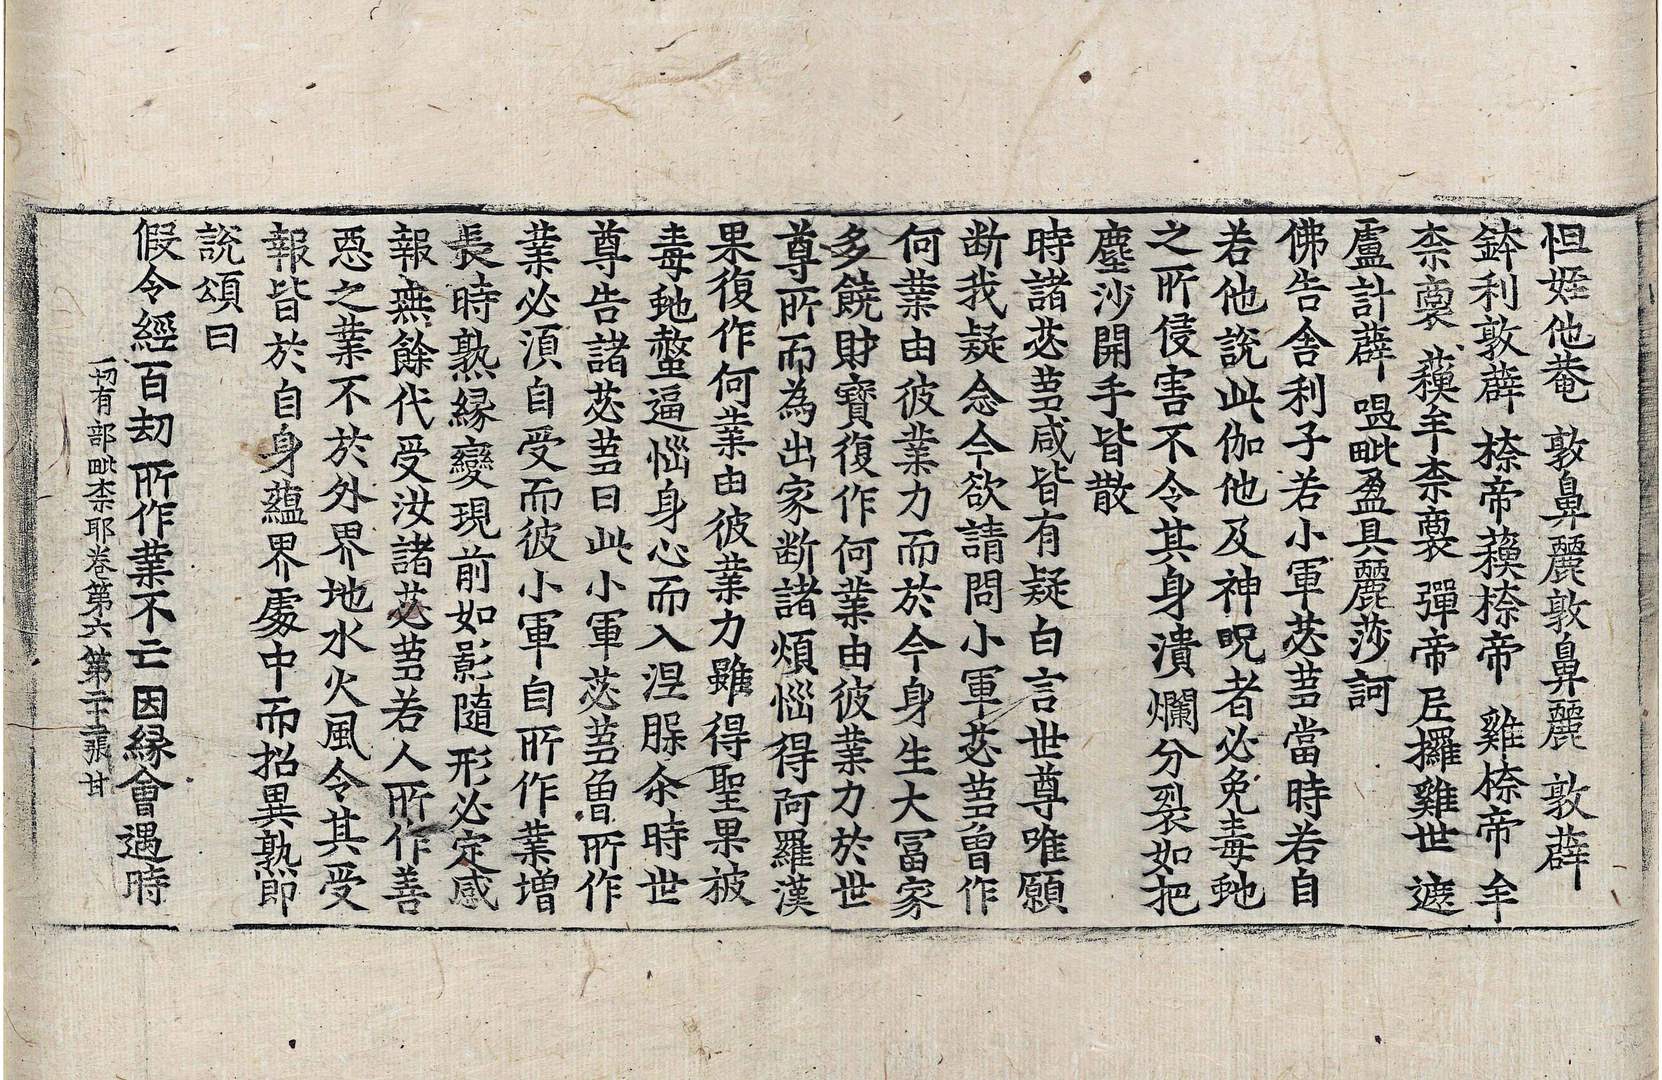 怛姪他菴 敦鼻麗敦鼻麗 敦薜
鉢利敦薜 㮈帝蘓㮈帝 雞㮈帝 牟
柰裒 蘓牟柰裒 彈帝 㞐攞雞世 遮
盧計薜 嗢毗盈具麗莎訶
佛告舍利子若小軍苾芻當時若自
若他說此伽他及神呪者必免毒虵
之所侵害不令其身潰爛分裂如把
塵沙開手皆散
時諸苾芻咸皆有疑白言世尊唯願
断我疑念今欲請問小軍苾芻曾作
何業由彼業力而於今身生大冨家
多饒財寶復作何業由彼業力於世
尊所而為出家断諸煩惱得阿羅漢
果復作何業由彼業力雖得聖果被
毒虵螫逼惱身心而入涅槃尒時世
尊告諸苾芻曰此小軍苾芻曾所作
業必湏自受而彼小軍自所作業增
長時熟縁變現前如影隨形必定感
報無餘代受汝諸苾芻若人所作善
惡之業不於外界地水火風令其受
報皆於自身蘊界處中而招異熟即
說頌曰
假令經百劫 所作業不亡 因縁會遇時
一切有部毗柰耶卷第六 第二十二張 甘